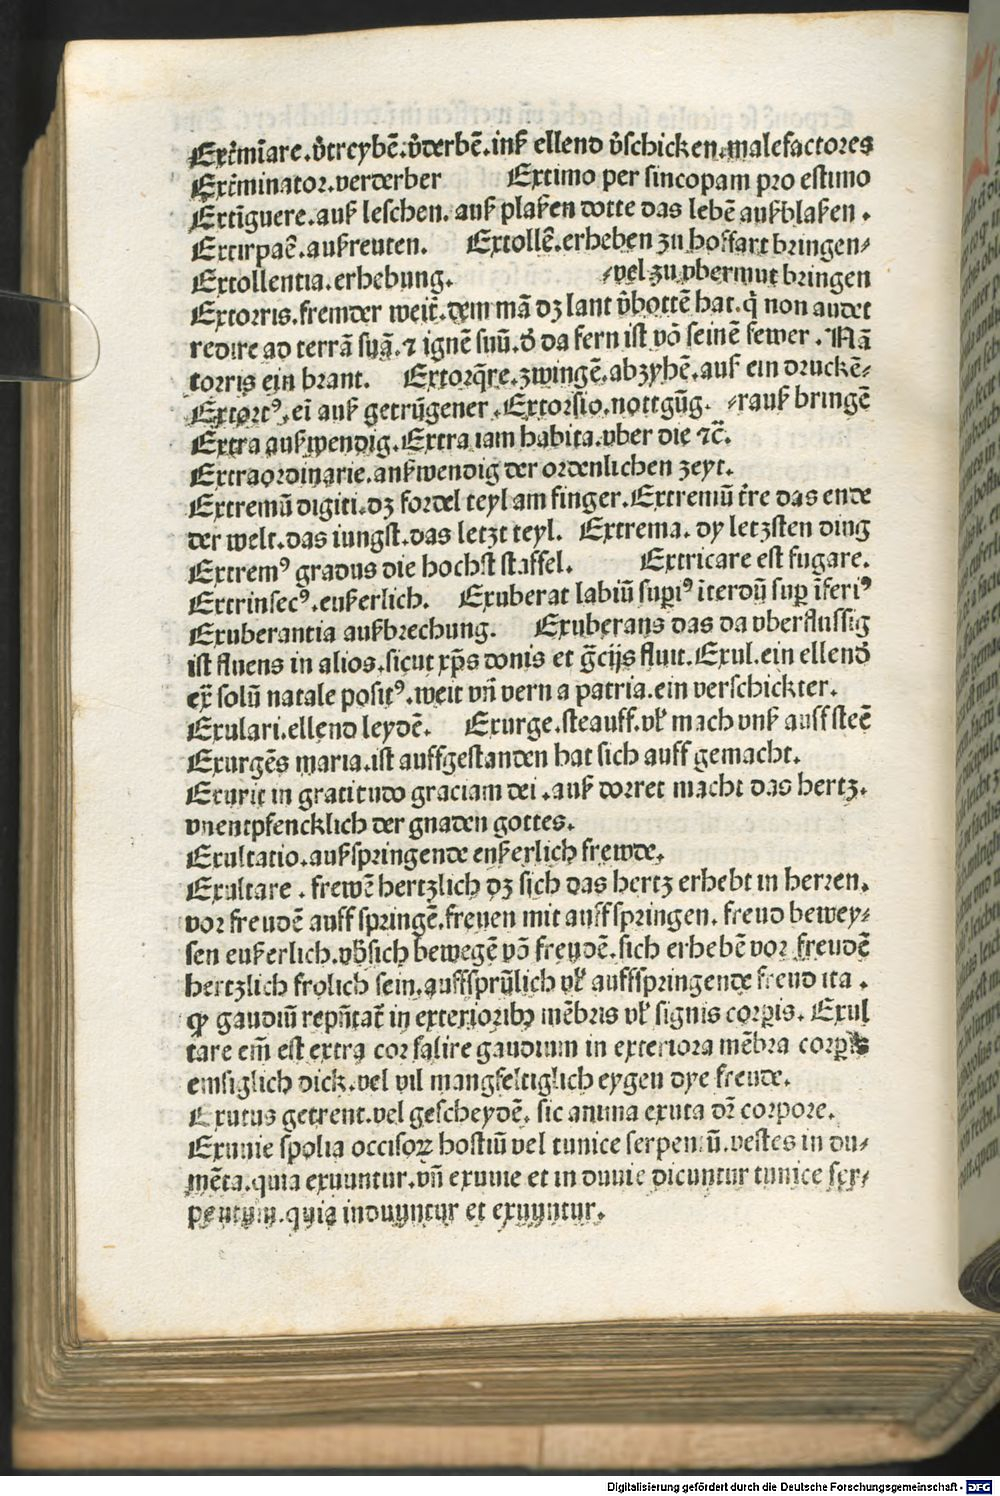 Exťmīare.v̓treybē.v̓derbē.inß ellend v̓schicken.malefactores
Exťminator.verderber Extimo per sincopam pro estimo
Extīguere.auß leschen.auß plaßen dotte das lebē außblaßen.
Extirpaē.außreuten. Extollē.erheben zu hoffart bringen⸗
Extollentia.erhebung. ⸗vel zu vbermut bringen
Extorris.fremder weit̓.dem mā dz lant v̓bottē hat.q̇ non audet
redire ad terrā suā.⁊ ignē suū.d̓ da fern ist vō seinē fewer.Nā
torris ein brant. Extorq̄re.zwingē.abzyhē.auß ein druckē⸗
Extortꝰ.eī auß getrūgener.Extorsio.nottgūg. ⸗rauß bringē
Extra außwendig.Extra iam habita.vber die ⁊c̄.
Extraordinarie.anßwendig der ordenlichen zeyt.
Extremū digiti.dz fordel teyl am finger.Extremū t̓re das ende
der welt.das iungst.das letzt teyl. Extrema.dy letzsten ding
Extremꝰ gradus die hochst staffel. Extricare est fugare.
Extrinsecꝰ.eußerlich. Exuberat labiū supiꝰ īterdū sup īferiꝰ
Exuberantia außbrechung. Exuberans das da vberflussig
ist fluens in alios.sicut xp̄s donis et gr̄cijs fluit.Exul.ein ellend̓
ex̄ solū natale positꝰ.weit vn̄ vern a patria.ein verschickter.
Exulari.ellend leydē. Exurge.steauff.vl̓ mach vnß auff steē
Exurgēs maria.ist auffgestanden hat sich auff gemacht.
Exurit in gratitudo graciam dei.auß dorret macht das hertz.
vnentpfencklich der gnaden gottes.
Exultatio.außspringende enßerlich frewde.
Exultare.frewē hertzlich dz sich das hertz erhebt in herren.
vor freudē auff springē.freuen mit auff springen.freud bewey⸗
sen eußerlich.vb̓sich bewegē vō freudē.sich erhebē vor freudē
hertzlich frolich sein.auffsprūlich vl̓ auffspringende freud ita.
ꝙ gaudiū repn̄tat̄ in exterioribꝫ mēbris vl̓ signis corpis.Exul
tare em̄ est extra cor salire gaudium in exteriora mēbra corpis
emsiglich dick.vel vil mangfeltiglich eygen dye freude.
Exutus getrent.vel gescheydē.sic anima exuta de corpore.
Exuuie spolia occisoꝝ hostiū vel tunice serpentū.vestes in du⸗
mēta.quia exuuntur.vn̄ exuuie et in duuie dicuntur tunice ser⸗
pentum.quia induuntur et exuuntur.
Digitalisierung gefördert durch die Deutsche Forschungsgemeinschaft - DFG